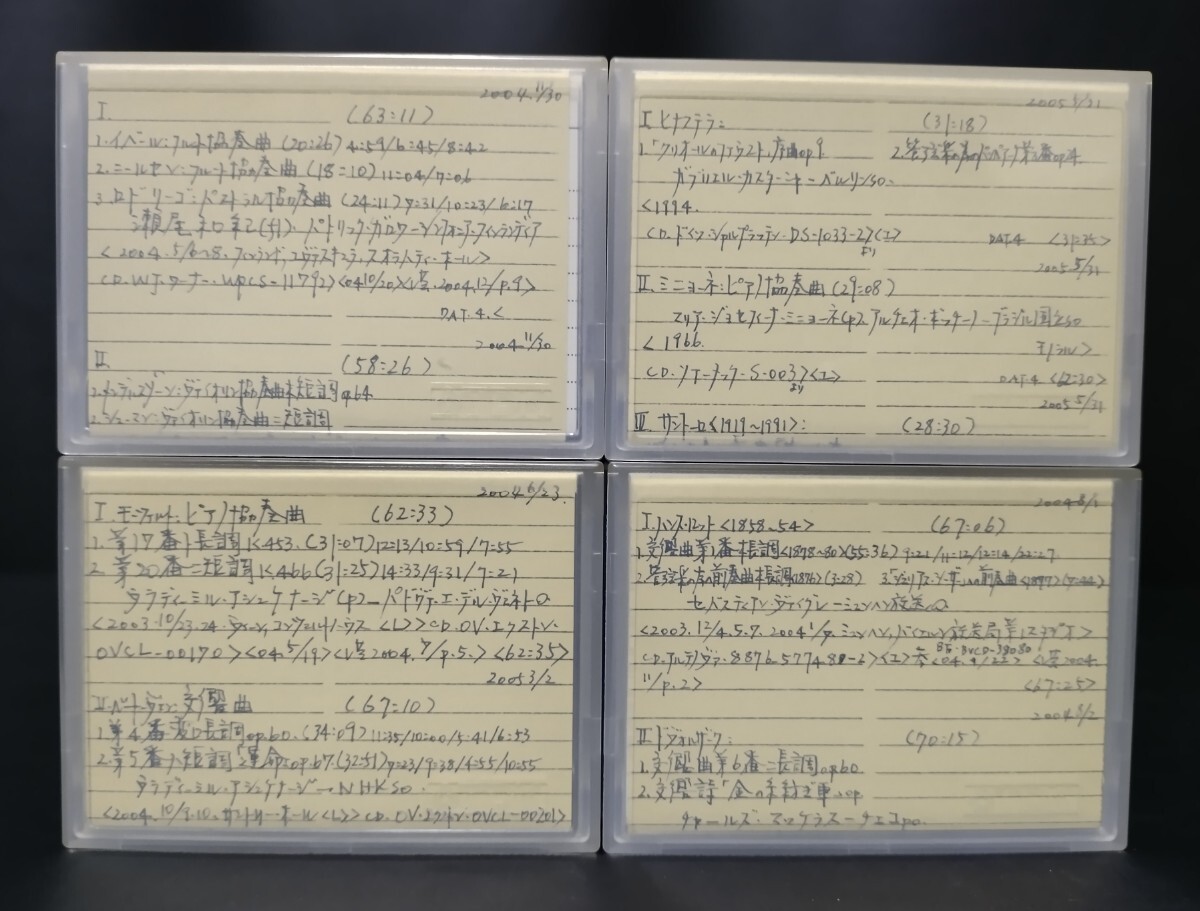 2004.11/30
I. (63:11)
1.イベール:フルート協奏曲(20:26)4:59/6:45/8:42
2.ニールセン:フルート協奏曲(18:10)11:04/7:06
3.ロドリーゴ:パストラル協奏曲(24:11)7:31/10:23/6:17
瀬尾和紀(fl).パトリック・ガロワーシンフォニア・フィンランディア
<2004.5/6~8.フィンランド,
CD.WJ.ワーナー.WPCS-11792><04.10/20><V芸.2004.12/p.9>
DAT.4.<
2004.11/30
II. (58:26)
1.メンデルスゾーン:ヴァイオリン協奏曲ホ短調op.64
2.シューマン:ヴァイオリン協奏曲ニ短調
2005.5/31
I.ヒナステラ: (31:18)
1.「クリオールのファウスト」序曲op.9 2.
ガブリエル・カスターニャーベルリンso.
<1994.
CD.ドイツ・シャルプラッテン.DS-1033-2より<I>
DAT.4 <31:35>
2005.5/31
II.ミニョーネ:ピアノ協奏曲(29:08)
マリア・ジョセフィーナ・ミニョーネ(p).アルチェオ・ボッキーノーブラジル国立so
<1966.
CD.ソアーメック.S-003より<I>
DAT.4 <62:30>
2005.5/31
III.サントーロ<1919~1991>: (28:30)
2004.6/23.
I.モーツァルト:ピアノ協奏曲 (62:33)
1.第17番ト長調K.453.(31:07)12:13/10:59/7:55
2.第20番ニ短調K.466(31:25)14:33/9:31/7:21
ヴラディーミル・アシュケナージ(p)ーパドヴァ・エ・デル・ヴェネトo
<2003.10/23.24.ウィーン,コンツェルトハウス<L>>CD.OV.エクストン.
OVCL-00170><04.5/19><V芸2004.7/p.5.><62:35>
2005 3/2
II.ベートーヴェン:交響曲 (67:10)
1.第4番変ロ長調op.60.(34:09)11:35/10:00/5:41/6:53
2.第5番ハ短調「運命」op.67(32:51)7:23/9:38/4:55/10:55
ヴラディーミル・アシュケナージーNHKso.
<2004.10/9.10.サントリーホール<L>>CD.OV.エクストン.OVCL-00201>
2004.8/1
I.ハンス・ロット<1858~54> (67:06)
1.交響曲第1番ホ長調<1878~80>(55:36)9:21/11:12/12:14/22:27
2.管弦楽の為の前奏曲ホ長調<1876>(3:28) 3.「ジュリアス・シーザー」への前奏曲<1877>
セバスティアン・ヴァイグレーミュンヘン放送o
<2003.12/4.5.7.2004.1/9.ミュンヘン,バイエルン放送局第1スタジオ>
CD.アルテノヴァ.82876.57748-2><I>
<04.9/22> <V芸2004.
11/p.2> <67:25>
2004 8/2
II.ドヴォルザーク: (70:15)
1.交響曲第6番ニ長調op.60
2.交響詩「金の紡ぎ車」op
チャールズ・マッケラスーチェコpo.